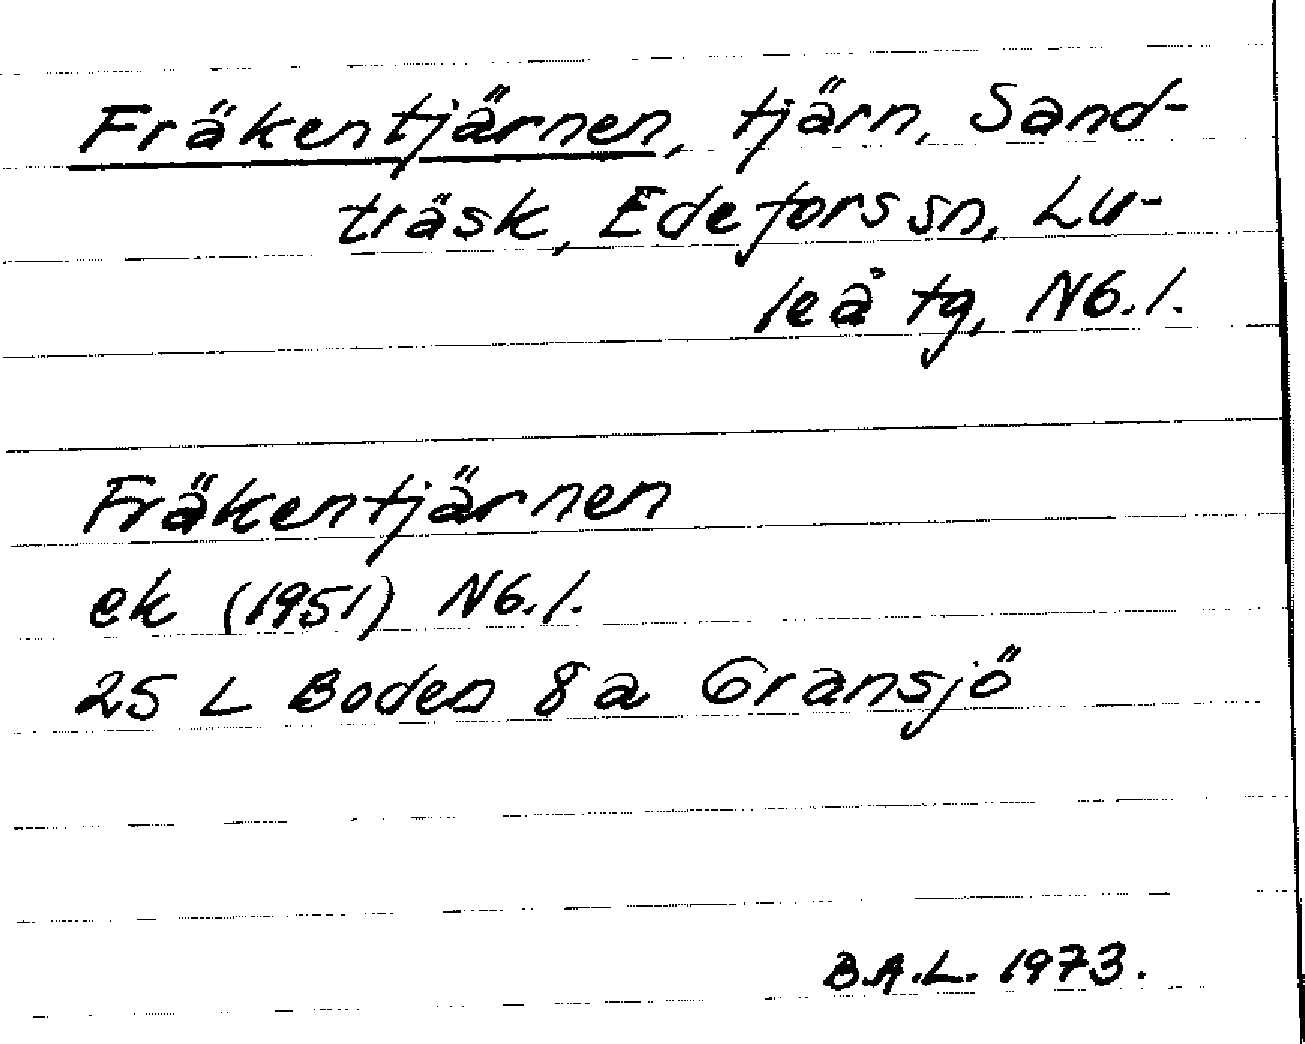 Fräkentjärnen, tjärn, Sand-
träsk, Edefors sn, Lu-
leå tg, Nb. l.
Fräkentjärnen
ek (1951) Nb. l.
25 L Boden 8 a Gransjö
B.A.L. 1973.